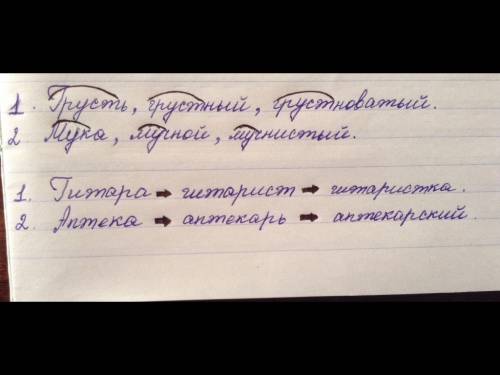 1. Грусть, грустный, грустноватый.
2. Мука, мучной, мучнистый.
1. Гитара ➡ гитарист ➡ гитаристка.
2. Аптека ➡ аптекарь ➡ аптекарский.